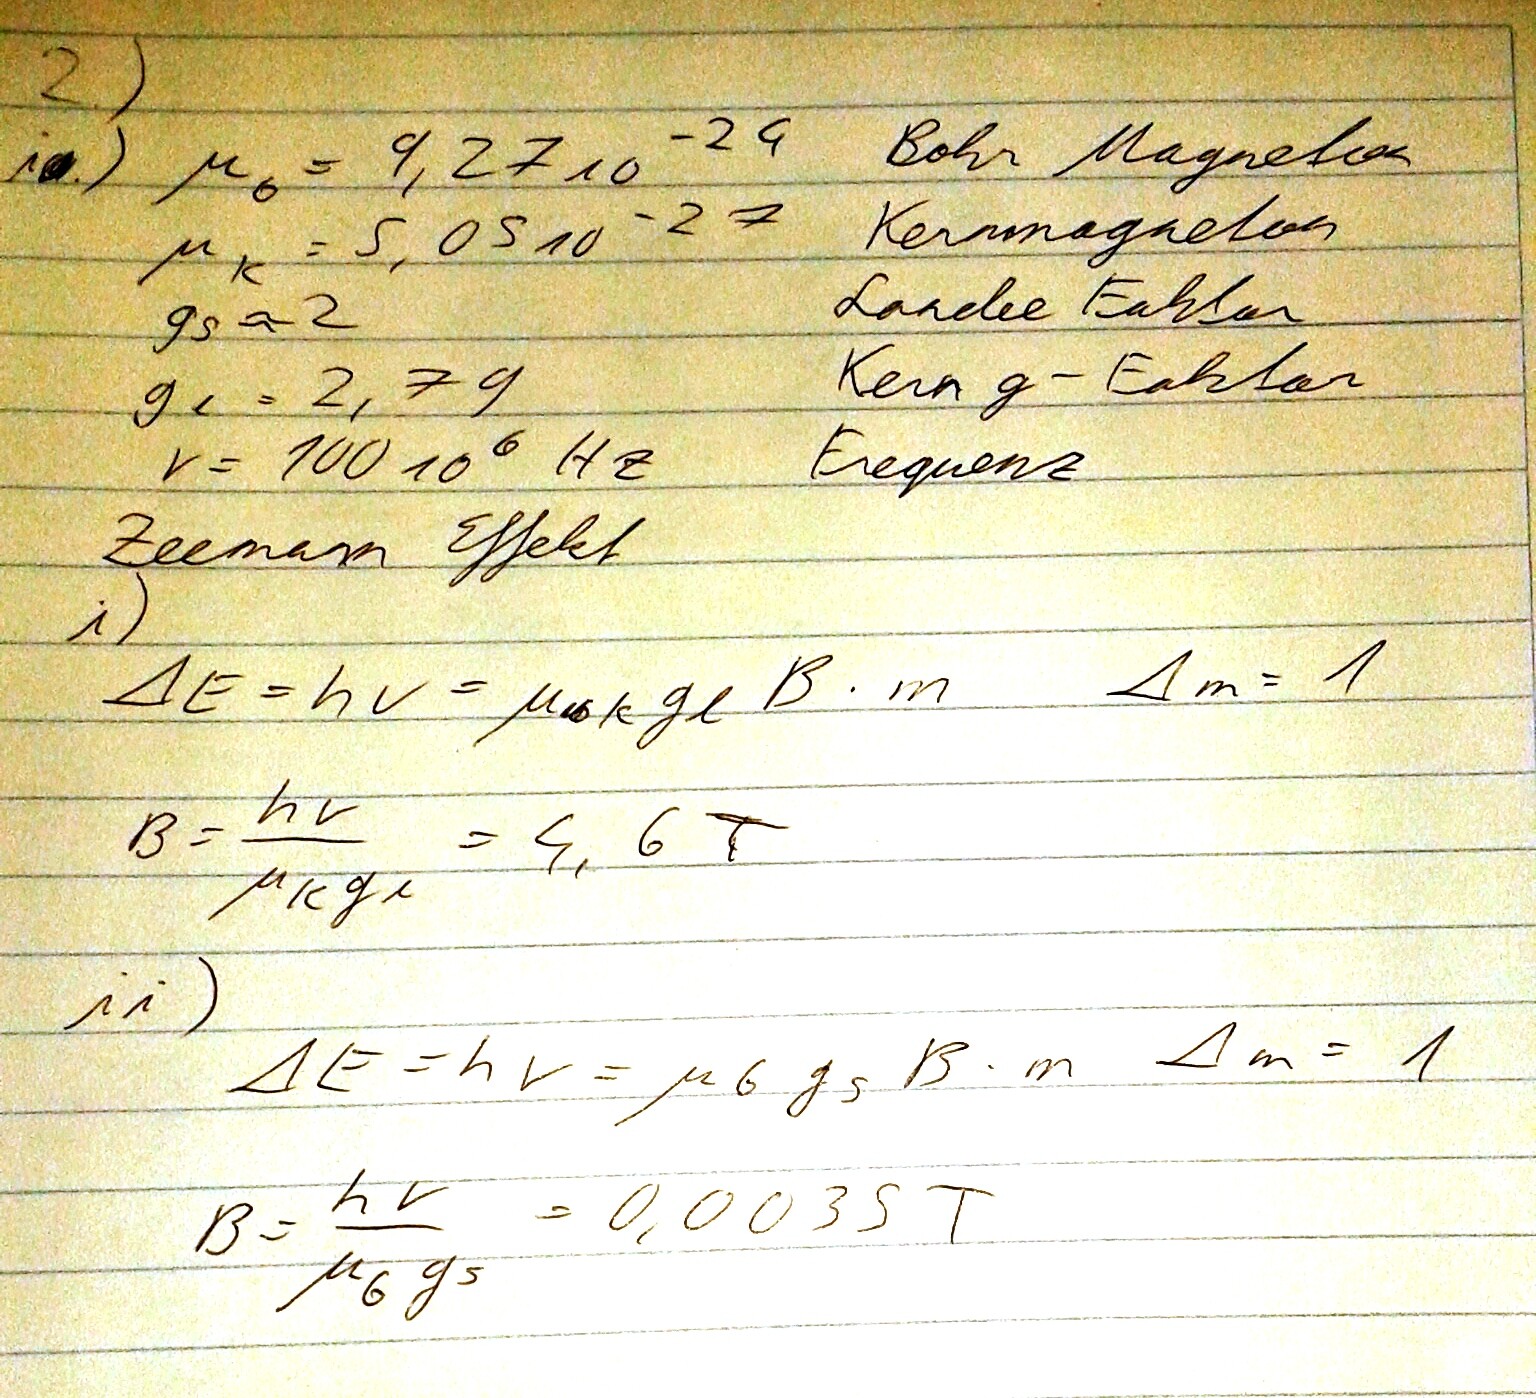 2.)
ia.) μ_b = 9,27 10^-24 Bohr Magneton
μ_K = 5,05 10^-27 Kernmagneton
g_s ≈ 2 Landee Faktor
g_i = 2,79 Kern g-Faktor
ν = 100 10^6 Hz Frequenz
Zeemann Effekt
i)
ΔE = hν = μ_K g_l B · m Δm = 1
B = hν / μ_K g_i = 4,6 T
ii)
ΔE = hν = μ_b g_s B · m Δm = 1
B = hν / μ_b g_s = 0,0035 T